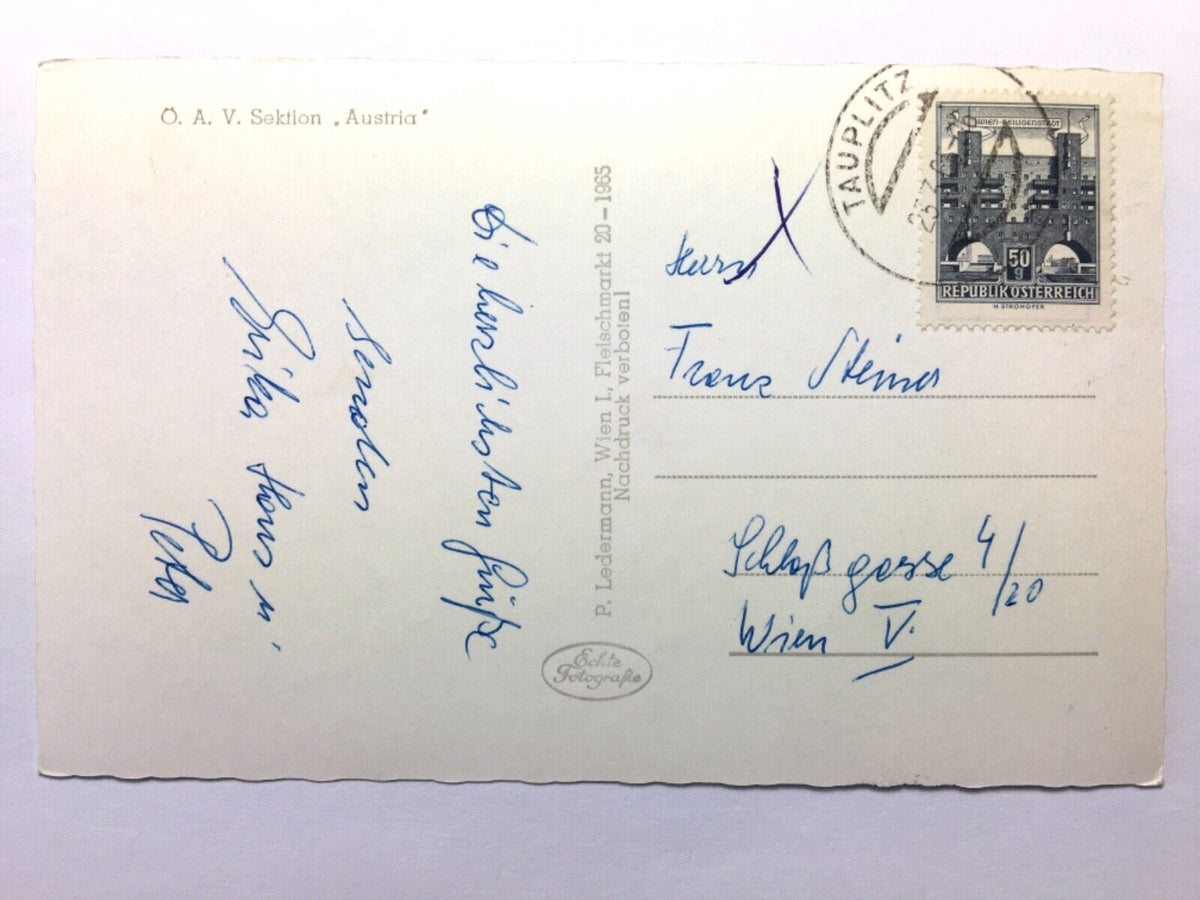 Ö. A. V. Sektion „Austria"
Die herzlichsten Grüße
senden
Erika Hans u
Peter
P. Ledermann, Wien I., Fleischmarkt 20 – 1965
Nachdruck verboten!
Echte
Fotografie
TAUPLITZ
WIEN-HEILIGENSTADT
50
g
REPUBLIK ÖSTERREICH
H. STROHOFER
Herrn
Franz Steiner
Schloßgasse 4/20
Wien V.